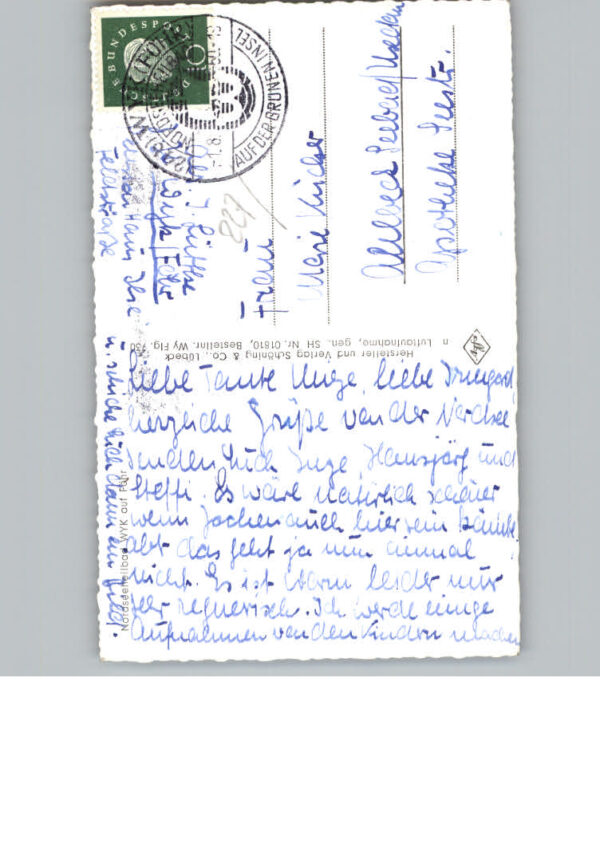 DEUTSCHE BUNDESPOST
10
WYK (FÖHR)
AUF DER GRÜNEN INSEL
827
Wyk / Föhr
Feldstraße
Frau
Marie Kircher
Seestr.
Hersteller und Verlag Schöning & Co., Lübeck
n Luftaufnahme, gen. SH Nr. 01810, Bestellnr. Wy Flg. 730
Nordseeheilbad WYK auf Föhr
Liebe Tante Liebe Irmgard,
herzliche Grüße von der Nordsee
senden Euch Inge, Hansjörg und
Steffi. Es wäre natürlich schöner
wenn Jochen auch hier sein könnte
aber das geht ja nun einmal
nicht. Es ist warm leider nur
sehr regnerisch. Ich werde einige
Aufnahmen von den Kindern machen
u. schicke Euch dann ein